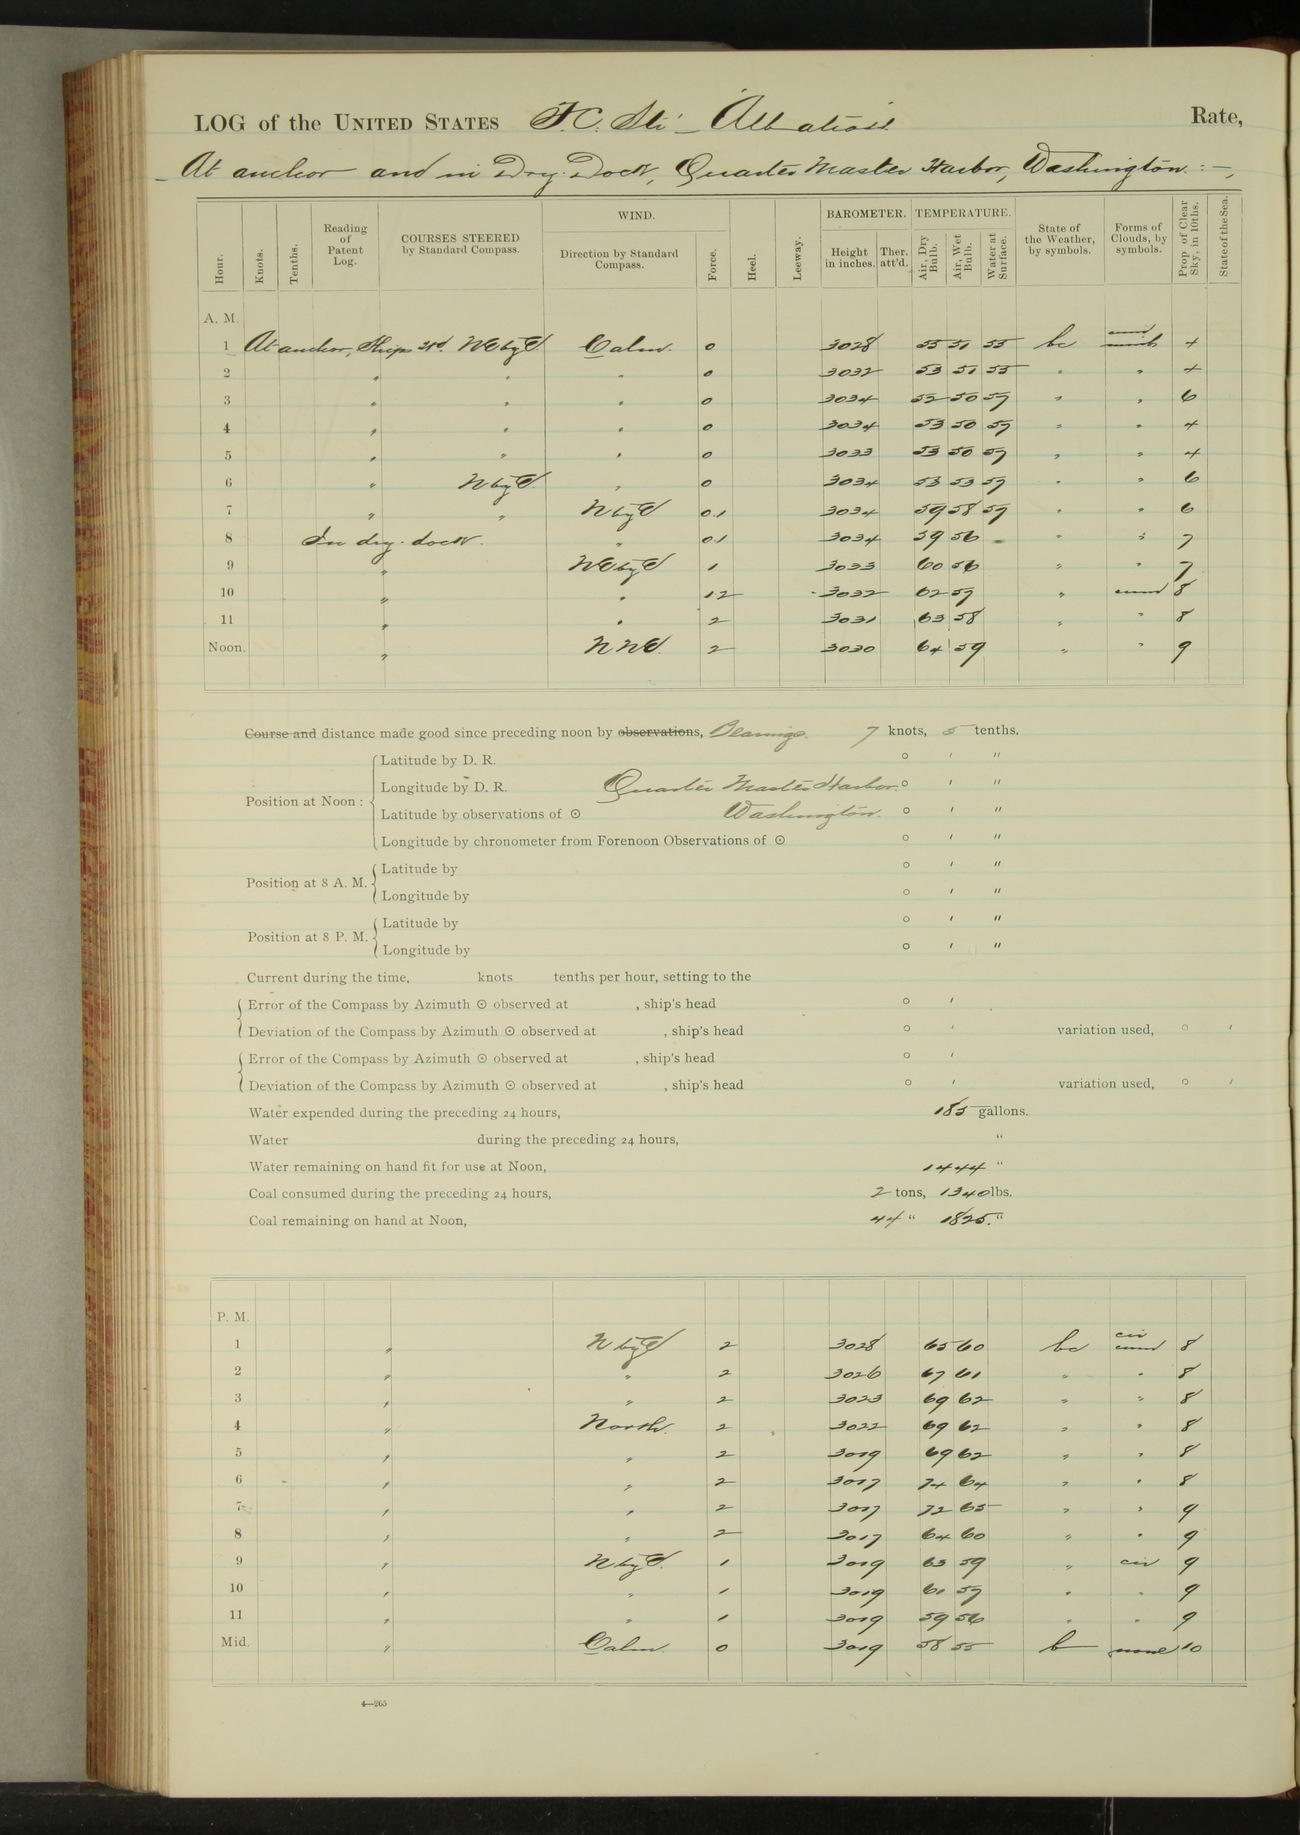 LOG of the UNITED STATES F.C. Str. Albatross Rate,
At anchor and in Dry-Dock, Quarter Master Harbor, Washington:—
WIND. BAROMETER. TEMPERATURE.
Hour. Knots. Tenths. Reading of Patent Log. COURSES STEERED by Standard Compass. Direction by Standard Compass. Force. Heel. Leeway. Height in inches. Ther. att'd. Air, Dry Bulb. Air, Wet Bulb. Water at Surface. State of the Weather, by symbols. Forms of Clouds, by symbols. Prop. of Clear Sky, in 10ths. State of the Sea.
A. M.
1 At anchor, Ship's Calm. 0 3028 55 51 55 bc 4
2 " " " 0 3032 53 51 55 " " 4
3 " " " 0 3034 52 50 57 " " 6
4 " " " 0 3034 53 50 57 " " 4
5 " " " 0 3033 53 50 57 " " 4
6 " N by E. " 0 3034 53 53 57 " " 6
7 " " N by E 0.1 3034 59 58 57 " " 6
8 In dry-dock. " 0.1 3034 59 56 - " " 7
9 " NE by E 1 3033 60 56 " " 7
10 " " 1.2 3032 62 57 " cum 8
11 " " 2 3031 63 58 " " 8
Noon. " NNE. 2 3030 64 59 " " 9
Course and distance made good since preceding noon by observations, Bearings. 7 knots, 5 tenths.
Latitude by D. R. ° ' "
Longitude by D. R. Quarter Master Harbor. ° ' "
Position at Noon :
Latitude by observations of ⊙ Washington. ° ' "
Longitude by chronometer from Forenoon Observations of ⊙ ° ' "
Latitude by ° ' "
Position at 8 A. M.
Longitude by ° ' "
Latitude by ° ' "
Position at 8 P. M.
Longitude by ° ' "
Current during the time, knots tenths per hour, setting to the
Error of the Compass by Azimuth ⊙ observed at , ship's head ° '
Deviation of the Compass by Azimuth ⊙ observed at , ship's head ° ' variation used, ° '
Error of the Compass by Azimuth ⊙ observed at , ship's head ° '
Deviation of the Compass by Azimuth ⊙ observed at , ship's head ° ' variation used, ° '
Water expended during the preceding 24 hours, 185 gallons.
Water during the preceding 24 hours, "
Water remaining on hand fit for use at Noon, 1444 "
Coal consumed during the preceding 24 hours, 2 tons, 1340 lbs.
Coal remaining on hand at Noon, 44 " 1825. "
P. M.
1 " N by E 2 3028 65 60 bc cir cum 8
2 " " 2 3026 67 61 " " 8
3 " " 2 3023 69 62 " " 8
4 " North. 2 3022 69 62 " " 8
5 " " 2 3019 69 62 " " 8
6 " " 2 3017 74 64 " " 8
7 " " 2 3017 72 65 " " 9
8 " " 2 3017 64 60 " " 9
9 " N by E. 1 3019 63 59 " cir 9
10 " " 1 3019 61 57 " " 9
11 " " 1 3019 59 56 " " 9
Mid. " Calm. 0 3019 58 55 b none 10
4—265